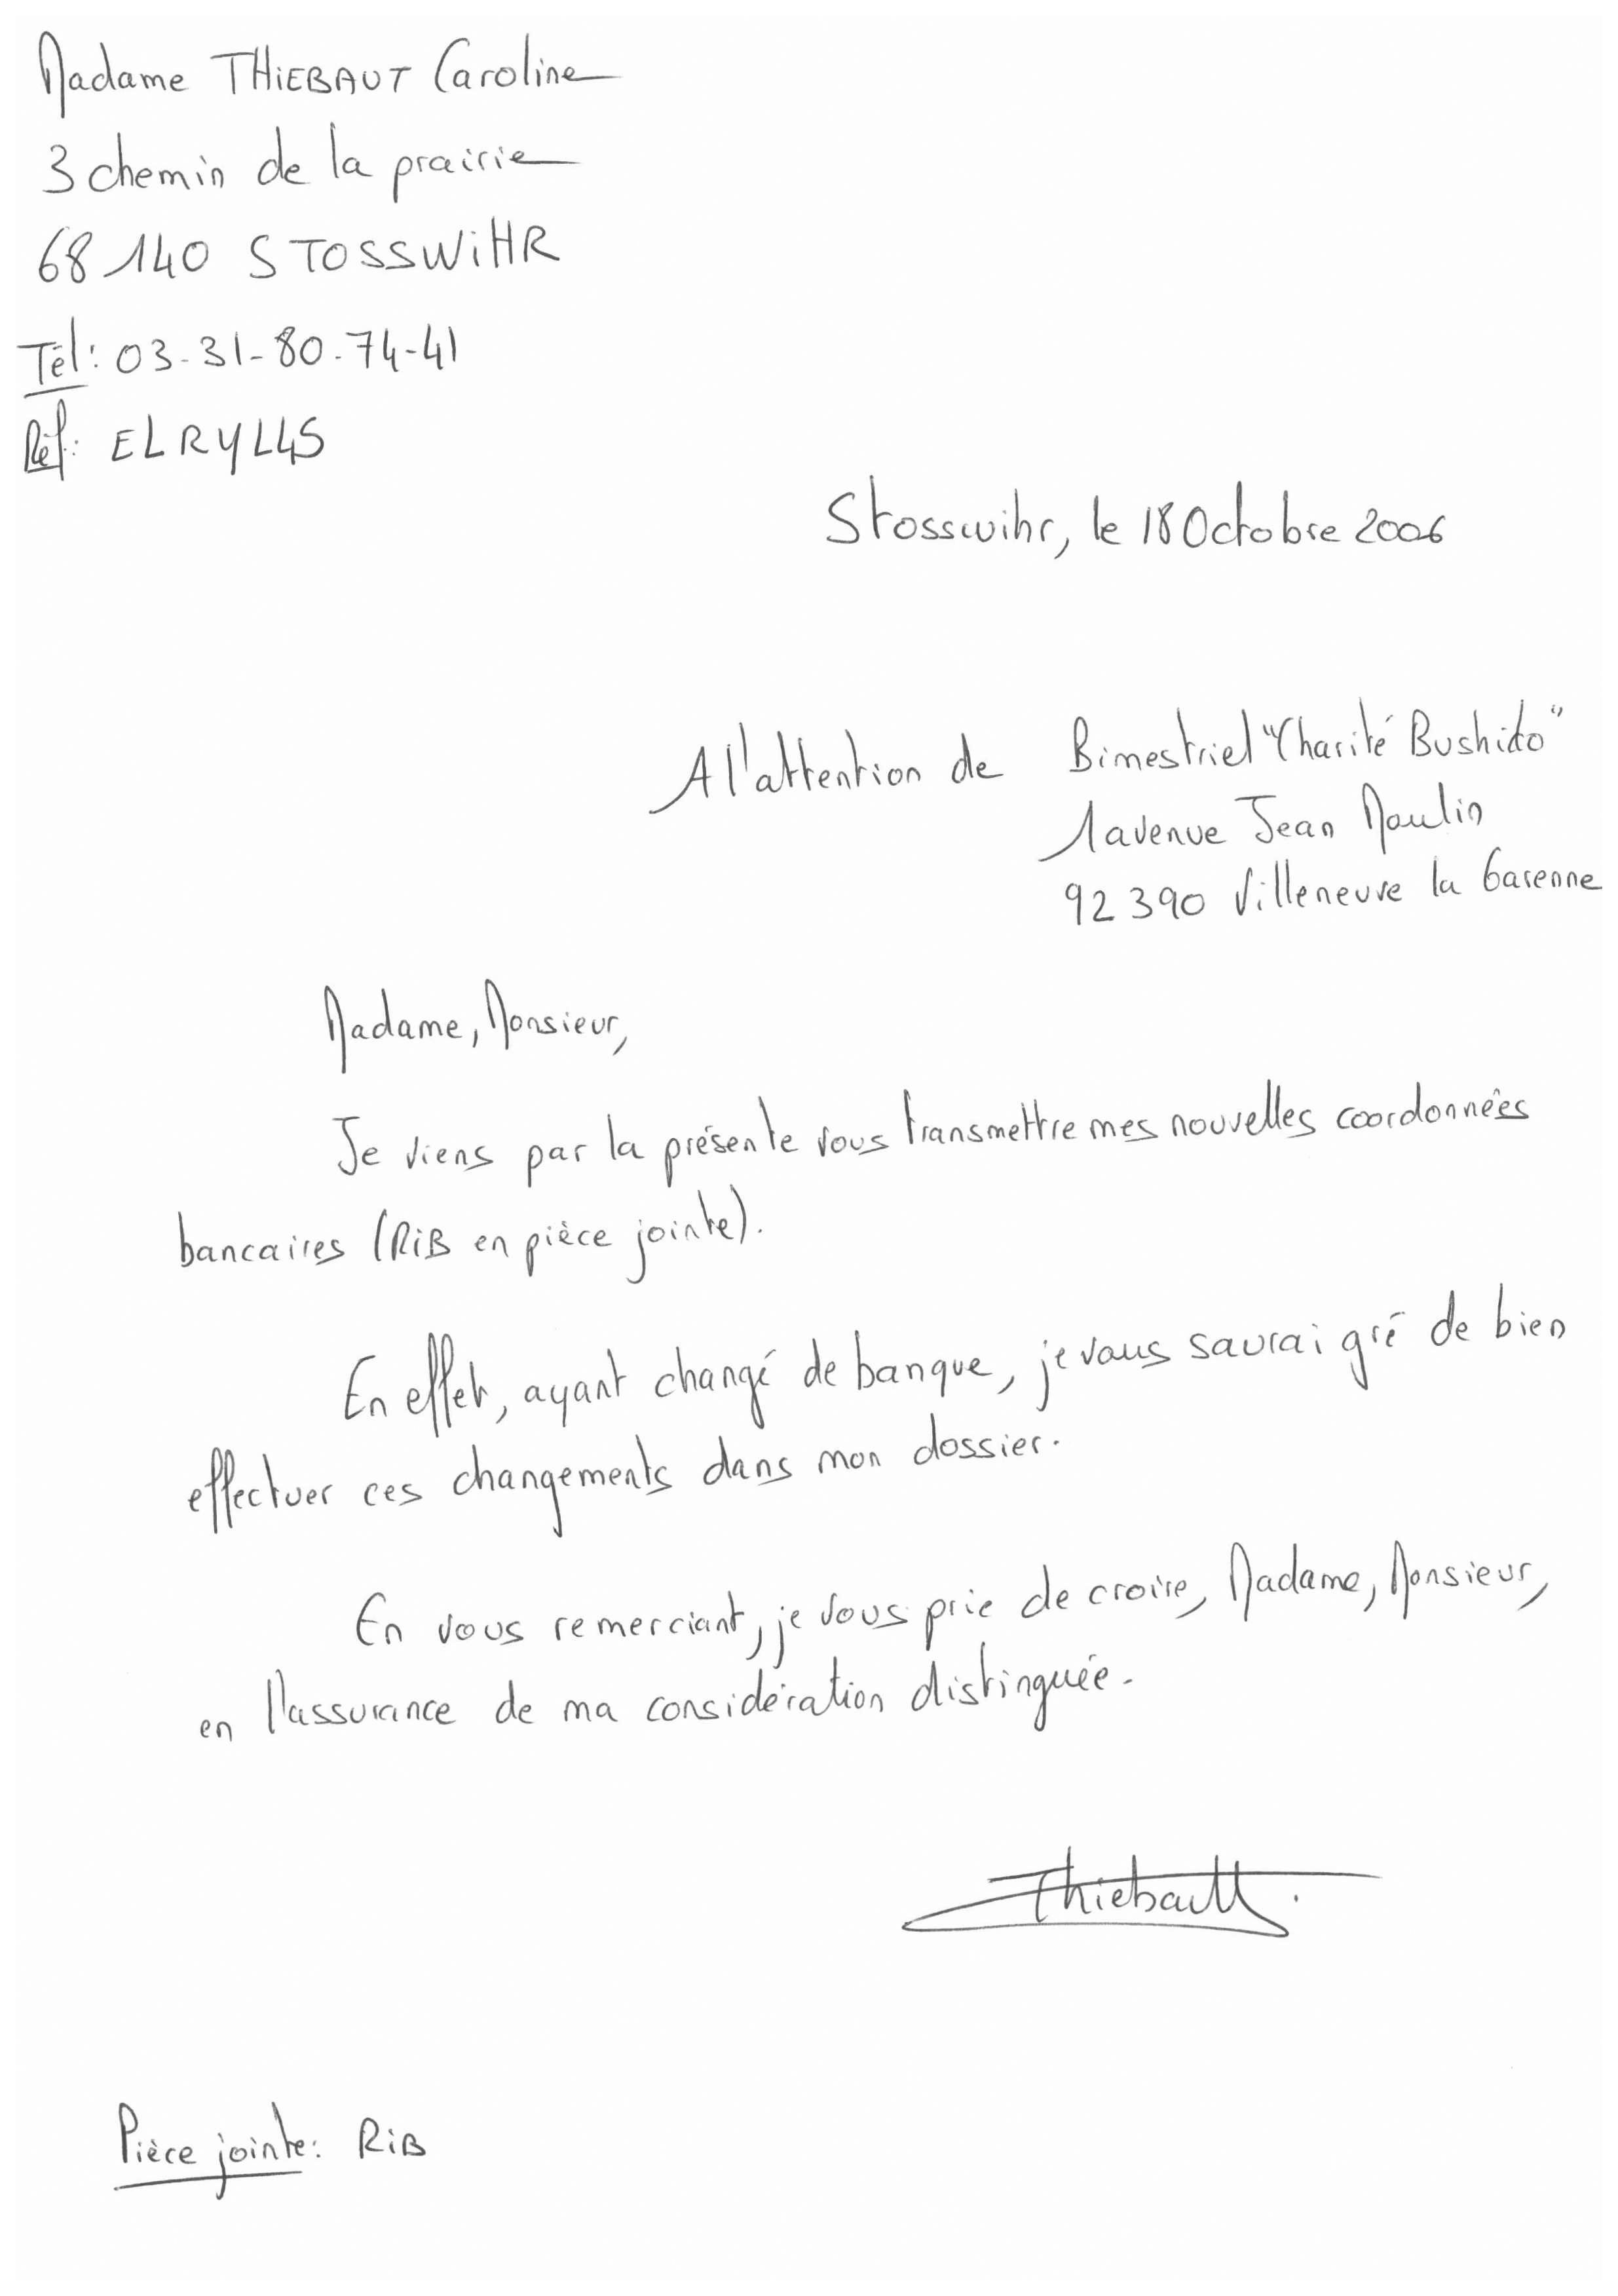 Madame THiEBAUT Caroline
3 chemin de la prairie
68 140 STOSSWiHR
Tél: 03-31-80-74-41
Réf: ELRYL4S
Stosswihr, le 18 Octobre 2006
A l'attention de Bimestriel "Charité Bushido"
1 avenue Jean Moulin
92 390 Villeneuve la Garenne
Madame, Monsieur,
Je viens par la présente vous transmettre mes nouvelles coordonnées
bancaires (RiB en pièce jointe).
En effet, ayant changé de banque, je vous saurai gré de bien
effectuer ces changements dans mon dossier.
En vous remerciant, je vous prie de croire, Madame, Monsieur,
en l'assurance de ma considération distinguée.
Thiebault.
Pièce jointe: RiB